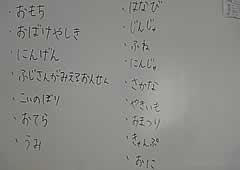 ・おもち
・おばけやしき
・にんげん
・ふじさんがみえるおんせん
・こいのぼり
・おてら
・うみ
・はなび
・じんじゃ
・ふね
・にんじゃ
・さかな
・やきいも
・おまつり
・きゃんぷ
・おに